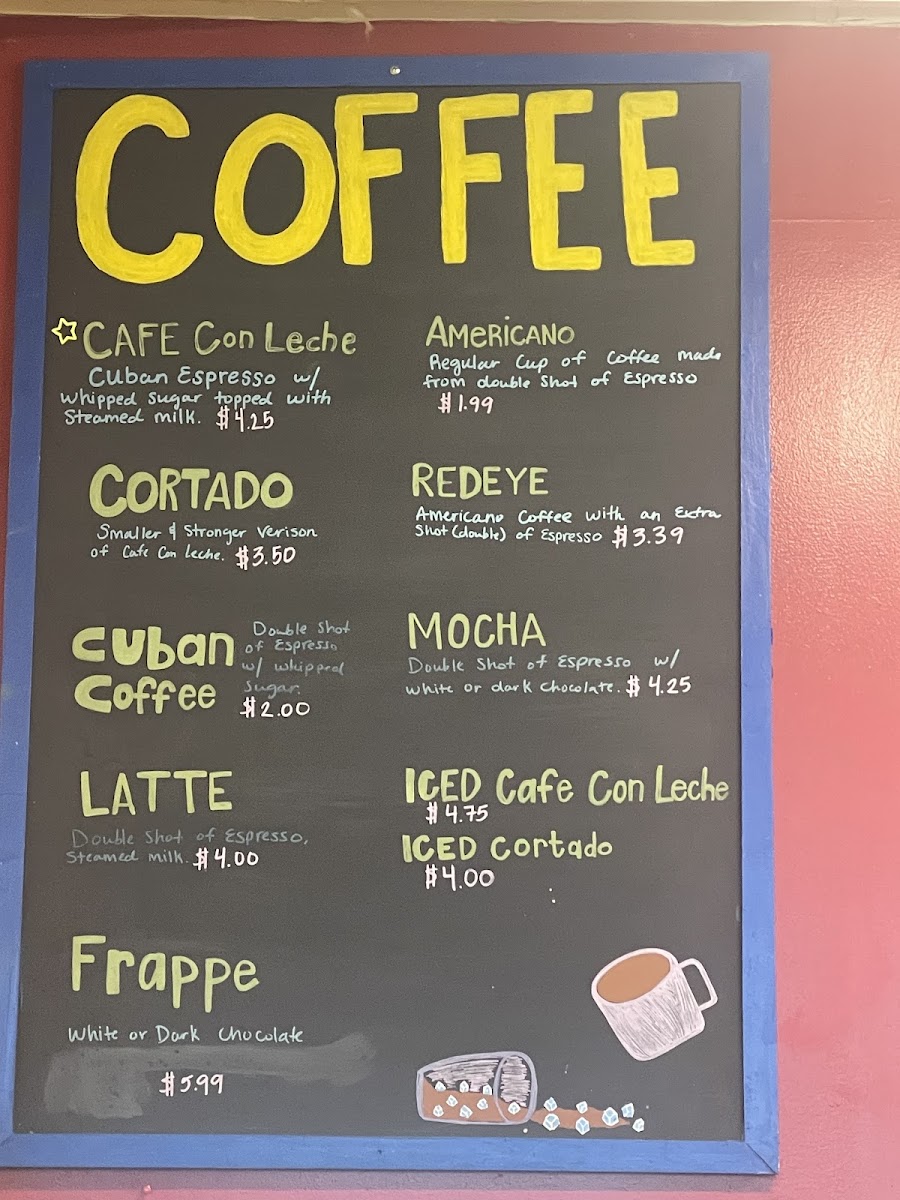 COFFEE
CAFE Con Leche
Cuban Espresso w/
whipped sugar topped with
Steamed milk. $4.25
CORTADO
Smaller & Stronger Verison
of Cafe Con Leche. $3.50
Cuban
Coffee
Double Shot
of Espresso
w/ whipped
Sugar.
$2.00
LATTE
Double Shot of Espresso,
Steamed milk. $4.00
Frappe
White or Dark Chocolate
$5.99
AMERICANO
Regular Cup of Coffee made
from double Shot of Espresso
$1.99
REDEYE
Americano Coffee with an Extra
Shot (double) of Espresso $3.39
MOCHA
Double Shot of Espresso w/
white or dark chocolate. $4.25
ICED Cafe Con Leche
$4.75
ICED Cortado
$4.00